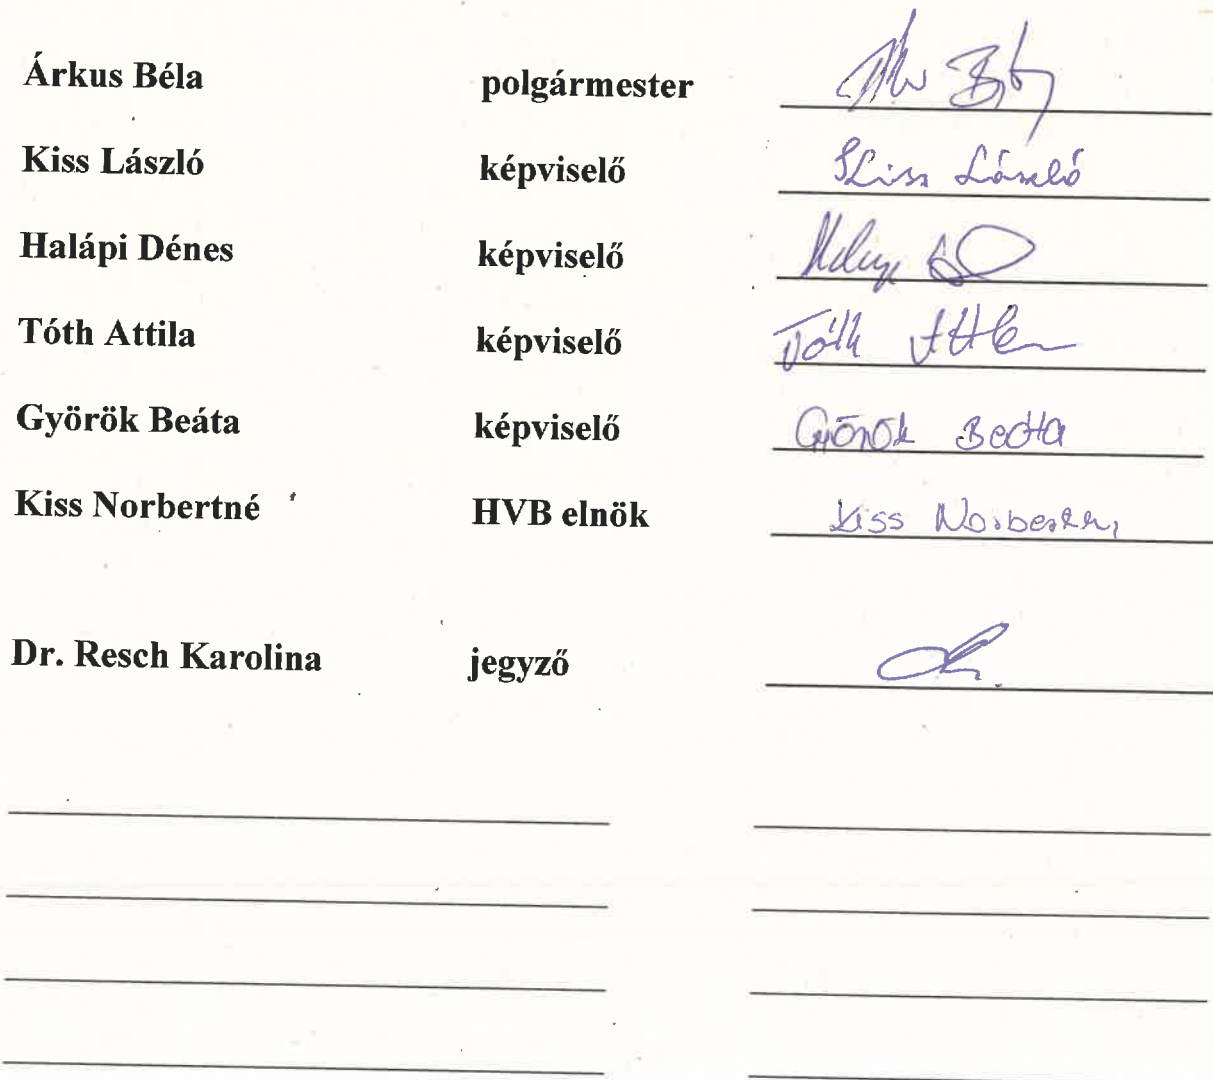 Árkus Béla polgármester
Kiss László képviselő Kiss László
Halápi Dénes képviselő
Tóth Attila képviselő Tóth Attila
Györök Beáta képviselő Györök Beáta
Kiss Norbertné HVB elnök Kiss Norbertné
Dr. Resch Karolina jegyző